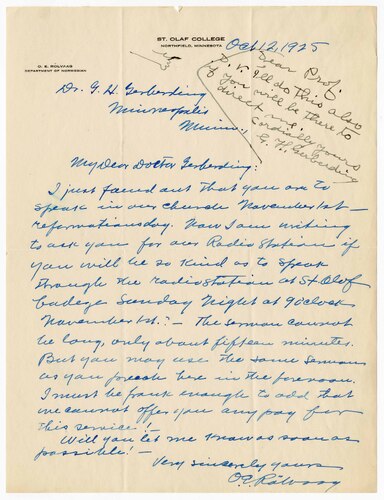 ST. OLAF COLLEGE
NORTHFIELD, MINNESOTA
O. E. ROLVAAG
DEPARTMENT OF NORWEGIAN
Oct 12, 1925
Dear Prof.
D. V. I'll do this also
if you will be there to
direct me.
Cordially yours
G. H. Gerberding
Dr. G. H. Gerberding
Minneapolis
Minn.,
My Dear Doctor Gerberding:
I just found out that you are to
speak in our church November 1st —
reformationsday. Now I am writing
to ask you for our Radio Station if
you will be so kind as to speak
through the radiostation at St Olaf
College Sunday Night at 9 o'clock
November 1st. ? — The sermon cannot
be long, only about fifteen minutes.
But you may use the same sermon
as you preach here in the forenoon.
I must be frank enough to add that
we cannot offer you any pay for
this service! —
Will you let me know as soon as
possible! —
Very sincerely yours
O E Rölvaag